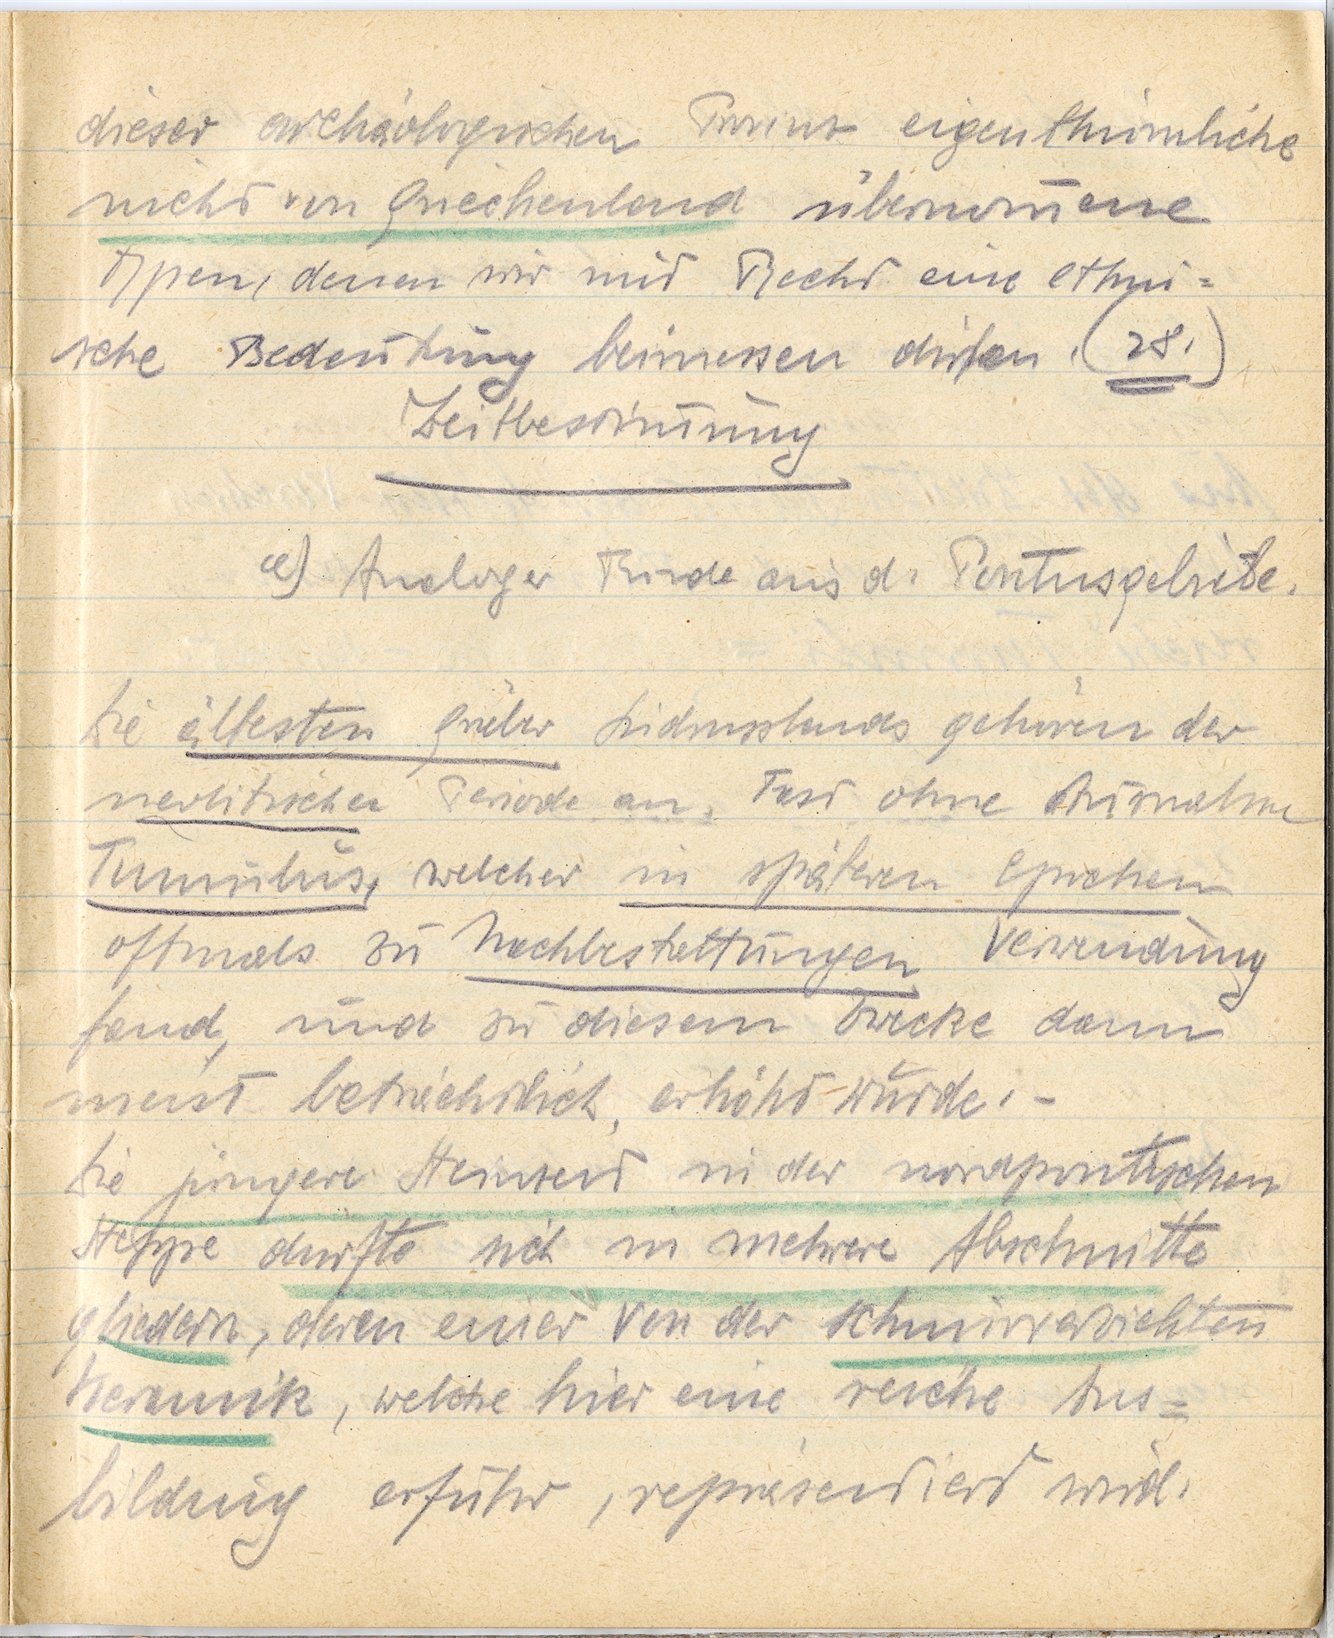 dieser archäologischen Provinz eigenthümliche
nicht von Griechenland übernom̄ene
Typen, denen wir mit Recht eine ethni=
sche Bedeutung beimessen dürfen. (28.)
Zeitbestim̄ung
a) Analoger Funde aus d. Pontusgebiete.
Die ältesten Gräber Südrusslands gehören der
neolitischen Periode an. Fast ohne Ausnahme
Tumulus, welcher in späteren Epochen
oftmals zu Nachbestattungen Verwendung
fand, und zu diesem Zwecke dann
meist beträchtlich erhöht wurde. -
Die jüngere Steinzeit in der nordpontischen
Steppe dürfte sich in mehrere Abschnitte
gliedern, deren einer von der schnurverzierten
Keramik, welche hier eine reiche Aus=
bildung erfuhr, repräsentiert wird.